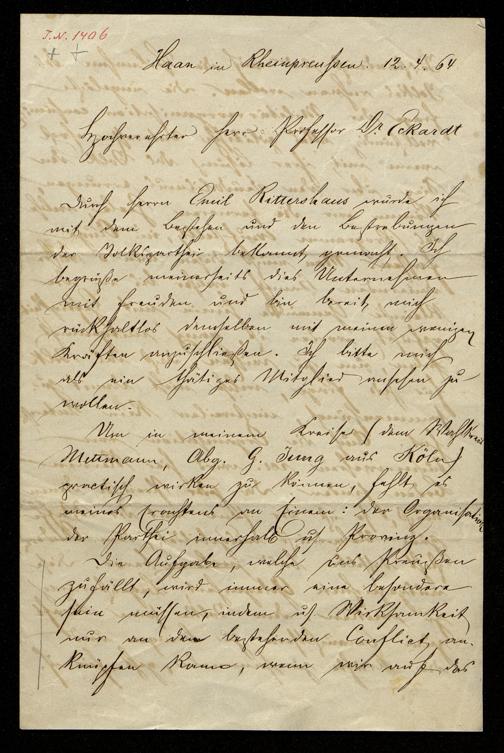 J.N. 1406
Haan in Rheinpreussen. 12.4.64
Hochverehrter Herr Professor Dr Eckardt
Durch Herrn Emil Rittershaus wurde ich
mit dem Bestehen und den Bestrebungen
der Volksparthei bekannt gemacht. Ich
begrüße meinerseits dies Unternehmen
mit Freuden und bin bereit, mich
rückhaltlos demselben mit meinen wenigen
Kräften anzuschließen. Ich bitte mich
als ein thätiges Mitglied ansehen zu
wollen.
Um in meinem Kreise (dem Wahlkreis
Mettmann, Abg. G. Jung aus Köln)
practisch wirken zu können, fehlt es
meines Erachtens an Einem: der Organisation
der Parthei innerhalb us Provinz.
Die Aufgabe, welche uns Preußen
zufällt, wird immer eine besondere
sein müssen, indem us Wirksamkeit
nur an den bestehenden Conflict an-
knüpfen kann, wenn wir auf das